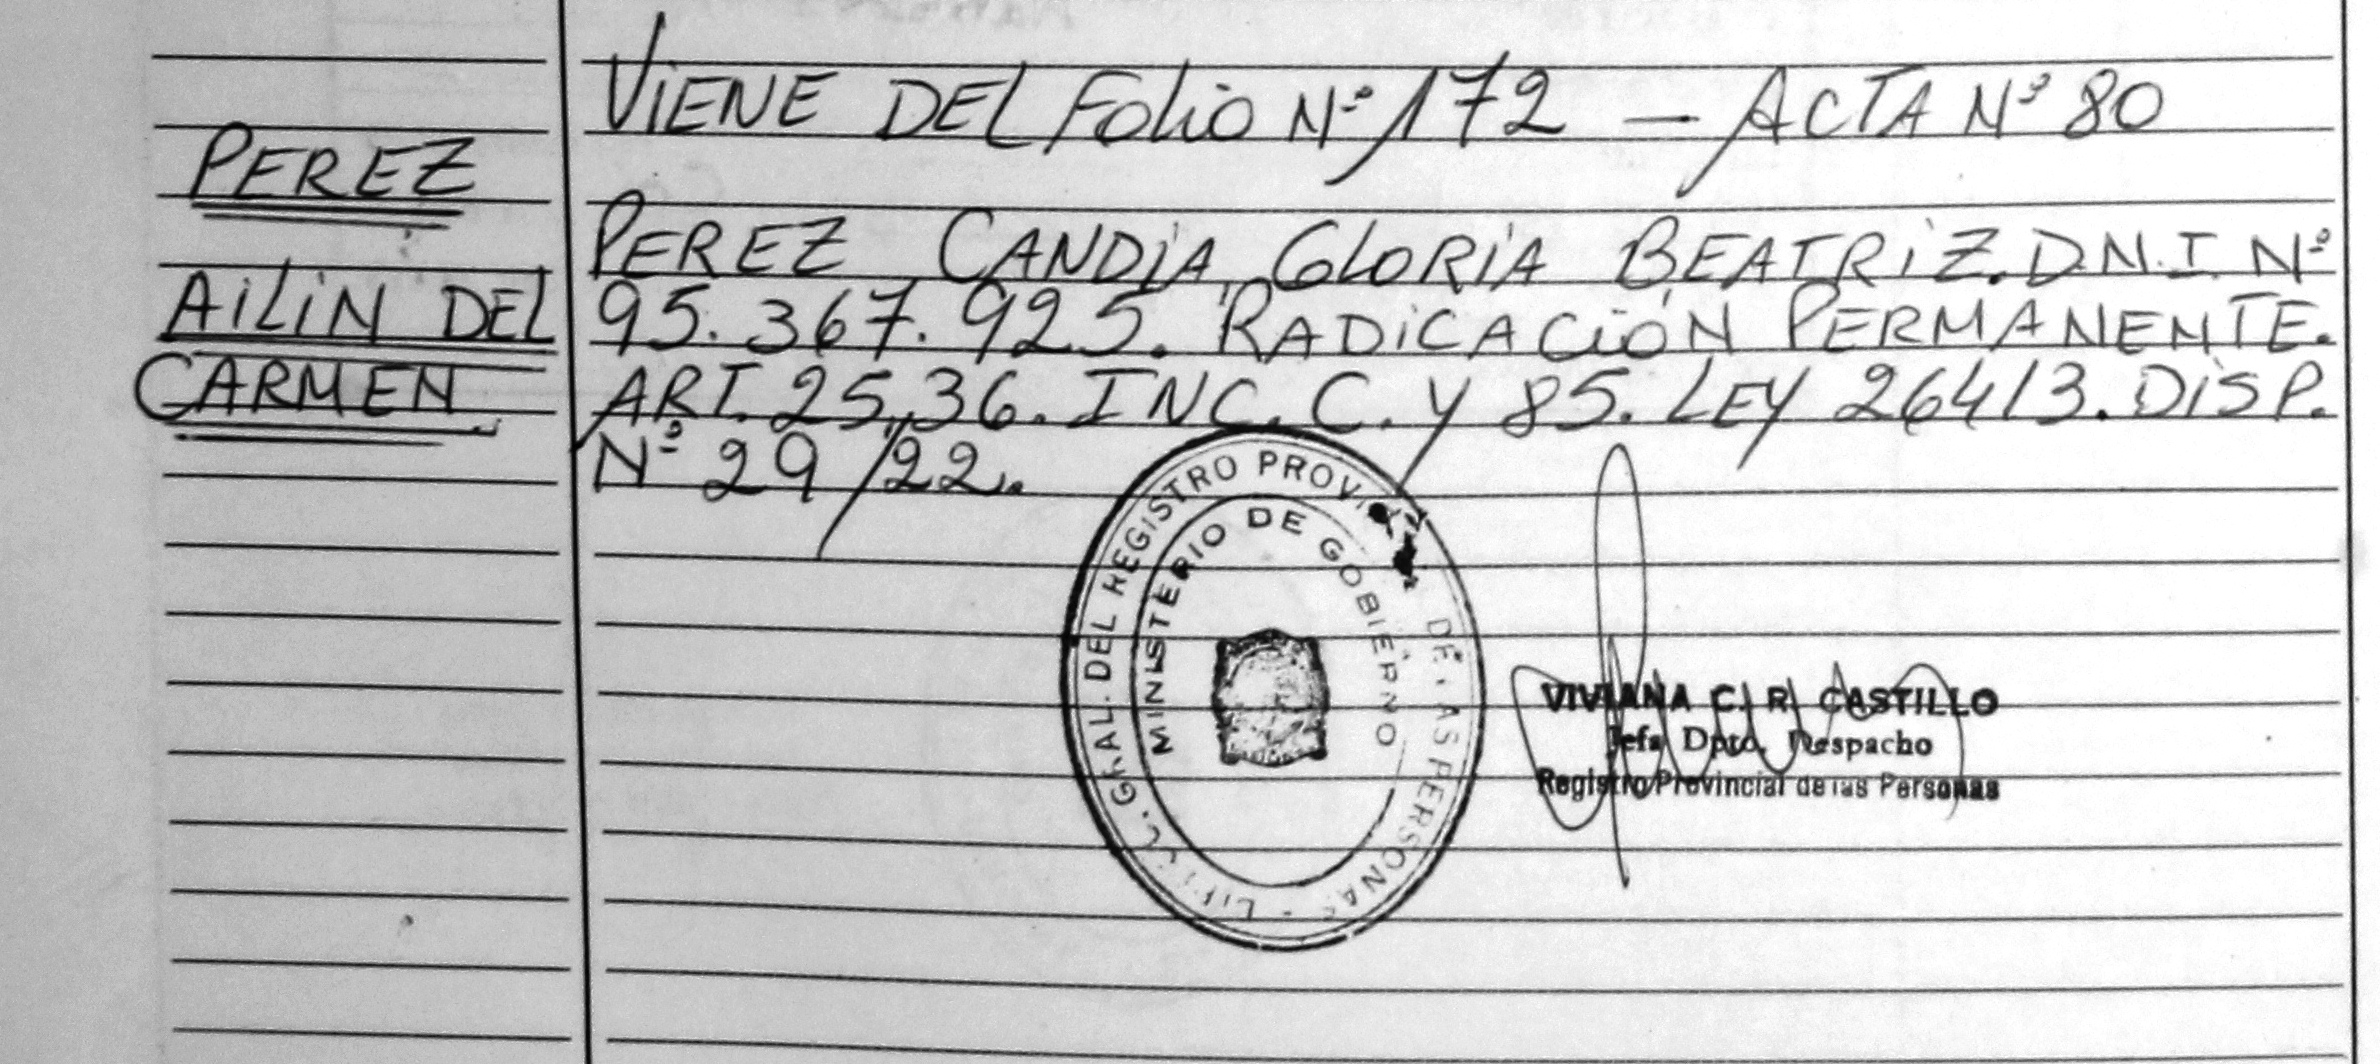 VIENE DEL FOLIO Nº 172 — ACTA Nº 80
PEREZ
AILIN DEL
CARMEN
PEREZ CANDIA, GLORIA BEATRIZ. D.N.I. Nº
95.367.925. RADICACIÓN PERMANENTE.
ART. 25,,36. INC. C. Y 85. LEY 26413. DISP.
Nº 29/22.
GRAL. DEL REGISTRO DE PERSONAS
MINISTERIO DE GOBIERNO
VIVIANA C. R. CASTILLO
Jefa Dpto. Despacho
Registro Provincial de las Personas